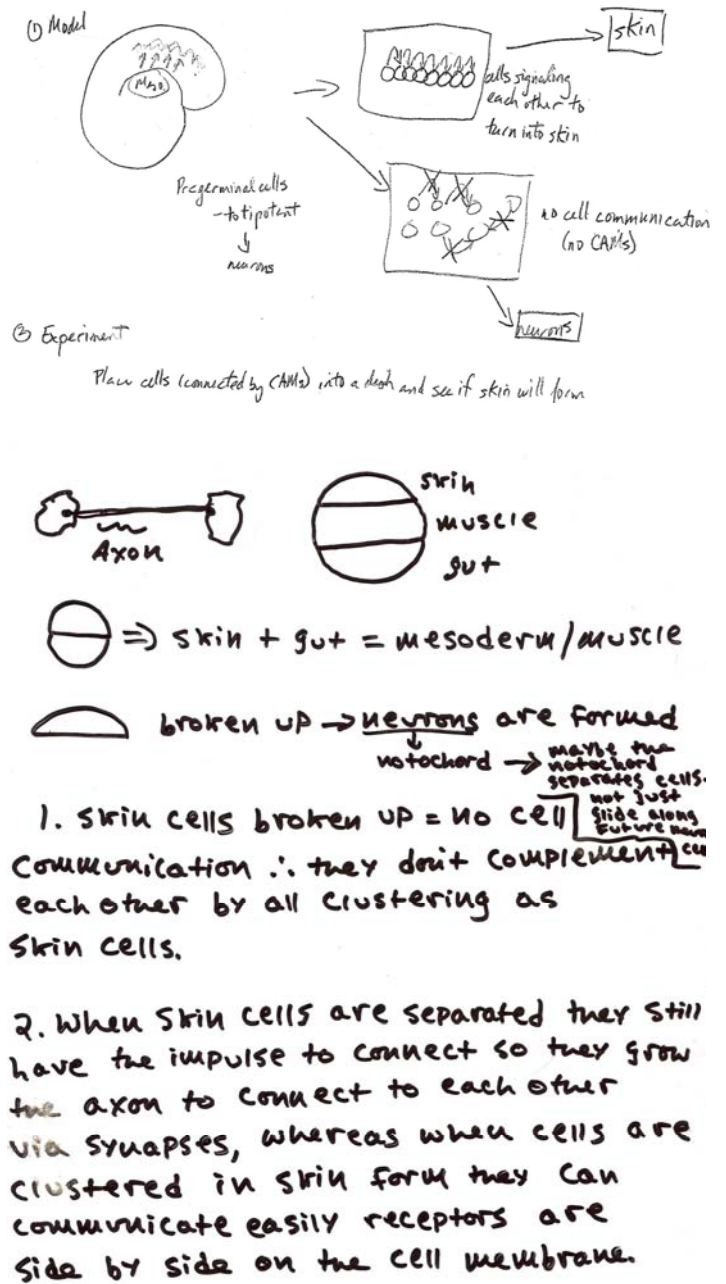 ① Model
skin
Meso
cells signaling
each other to
turn into skin
Pregerminal cells
- totipotent
↓
neurons
no cell communication
(no CAMs)
neurons
② Experiment
Place cells (connected by CAMs) into a dish and see if skin will form
Axon
skin
muscle
gut
⇒ skin + gut = mesoderm/muscle
broken up → neurons are formed
↓
notochord → maybe the
notochord
separates cells.
not just
slide along
future
1. Skin cells broken up = no cell
communication ∴ they don't complement
each other by all clustering as
skin cells.
2. When skin cells are separated they still
have the impulse to connect so they grow
the axon to connect to each other
via synapses, whereas when cells are
clustered in skin form they can
communicate easily receptors are
side by side on the cell membrane.